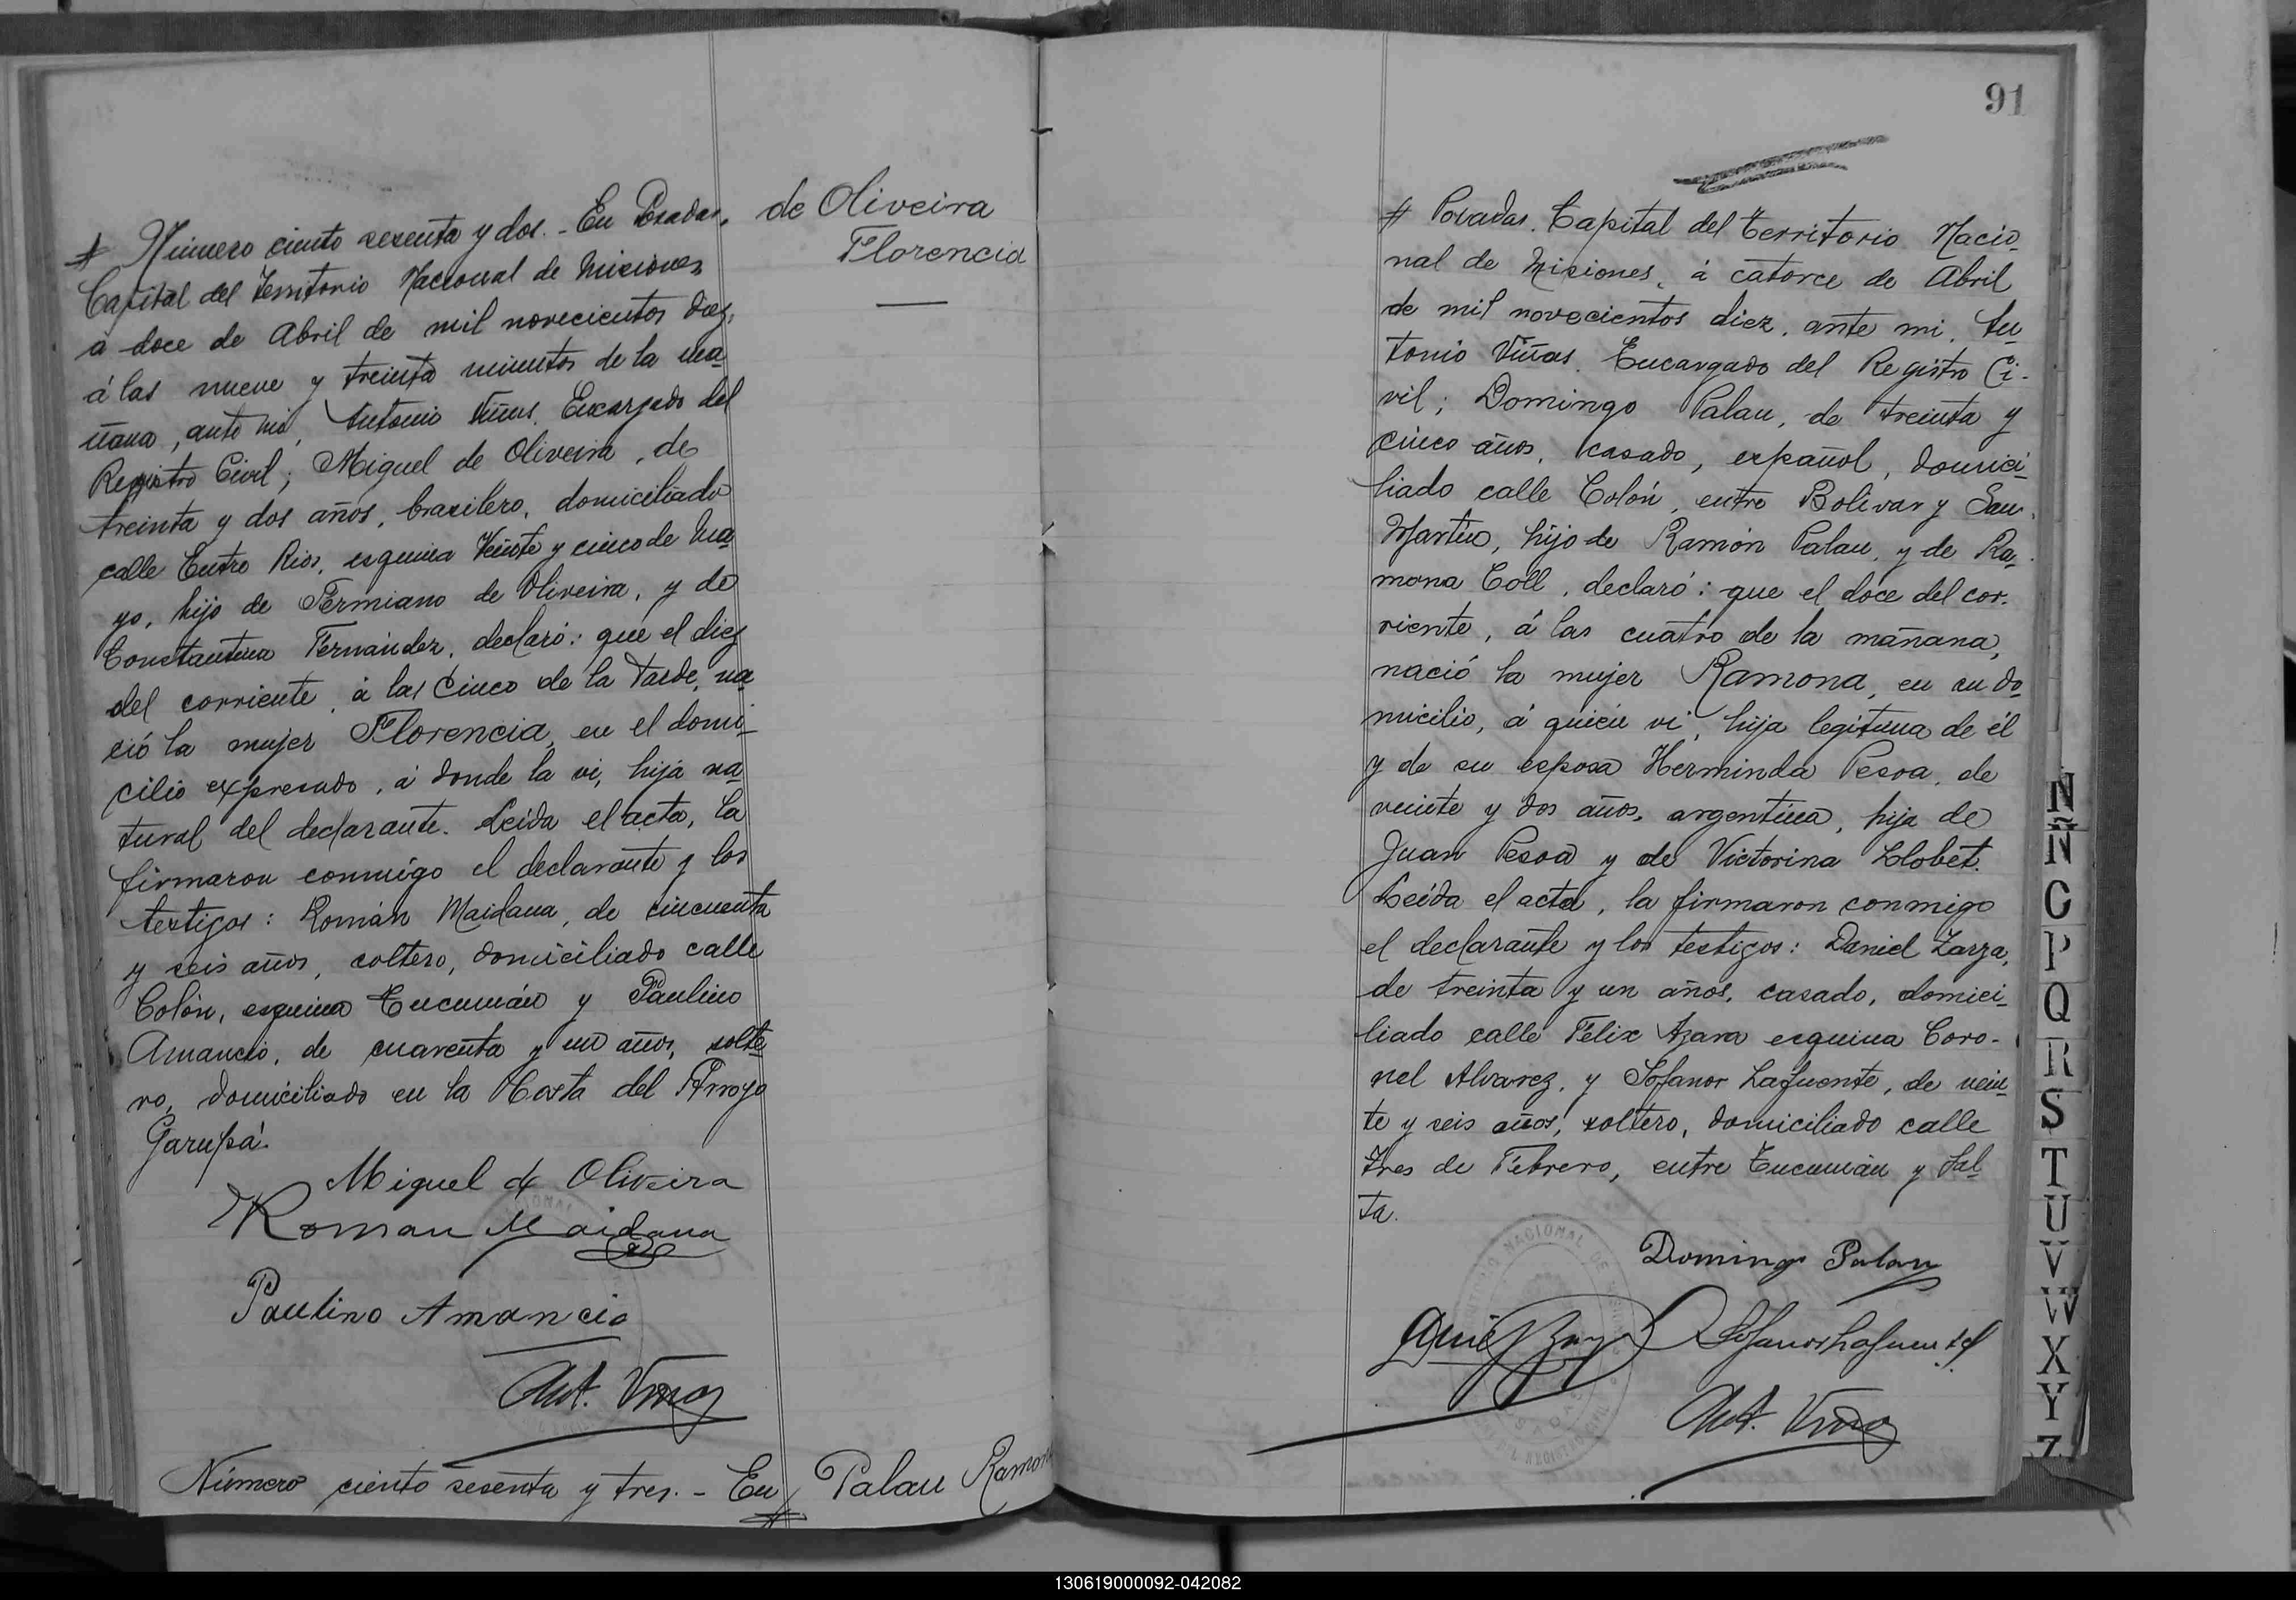 # Número ciento sesenta y dos. - En Posadas,
Capital del Territorio Nacional de Misiones
á doce de Abril de mil novecientos diez,
á las nueve y treinta minutos de la ma
ñana, ante mi, Antonio Viñas, Encargado del
Registro Civil; Miguel de Oliveira, de
treinta y dos años, brasilero, domiciliado
calle Entre Rios, esquina Veinte y cinco de Ma
yo, hijo de Fermiano de Oliveira, y de
Constantina Fernández, declaró: que el diez
del corriente, á las cinco de la tarde, na
ció la mujer Florencia, en el domi
cilio expresado, á donde la vi, hija na
tural del declarante. Leida el acta, la
firmaron conmigo el declarante y los
testigos: Román Maidana, de cincuenta
y seis años, soltero, domiciliado calle
Colón, esquina Tucumán y Paulino
Amancio, de cuarenta y un años, solte
ro, domiciliado en la Costa del Arroyo
Garupá.
Miguel de Oliveira
Roman Maidana
Paulino Amancio
Ant. Viñas
de Oliveira
Florencia
Número ciento sesenta y tres. - En #
Palau Ramona
91
# Posadas. Capital del Territorio Nacio
nal de Misiones, á catorce de Abril
de mil novecientos diez, ante mi, An
tonio Viñas, Encargado del Registro Ci-
vil; Domingo Palau, de treinta y
cinco años, casado, español, domici
liado calle Colón, entre Bolivar y San
Martin, hijo de Ramón Palau, y de Ra
mona Coll, declaró: que el doce del cor-
riente, á las cuatro de la mañana,
nació la mujer Ramona, en su do
micilio, á quien vi, hija legitima de él
y de su esposa Herminda Pesoa, de
veinte y dos años, argentina, hija de
Juan Pesoa y de Victorina Llobet.
Leida el acta, la firmaron conmigo
el declarante y los testigos: Daniel Zarza,
de treinta y un años, casado, domici-
liado calle Félix Azara esquina Coro-
nel Alvarez, y Sofanor Lafuente, de vein
te y seis años, soltero, domiciliado calle
Tres de Febrero, entre Tucumán y Sal
ta.
Domingo Palau
Sofanor Lafuente
Ant. Viñas
N
Ñ
P
Q
R
S
T
U
V
W
X
Y
Z
130619000092-042082